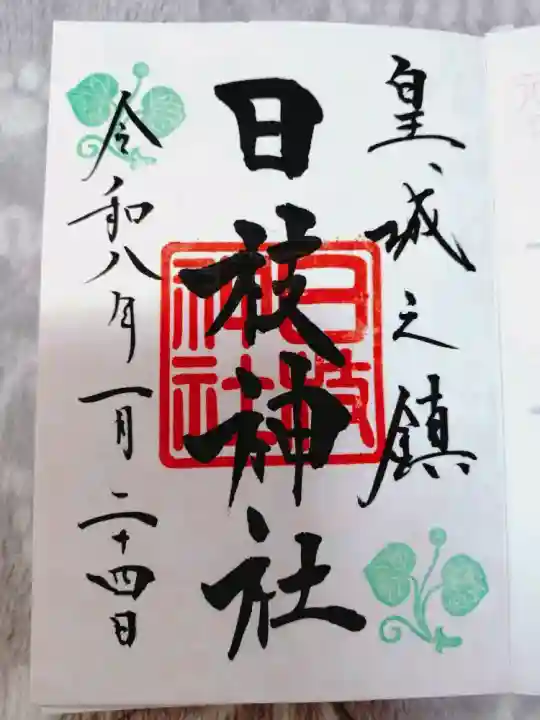 皇城之鎮
日枝神社
日枝神社
令和八年一月二十四日